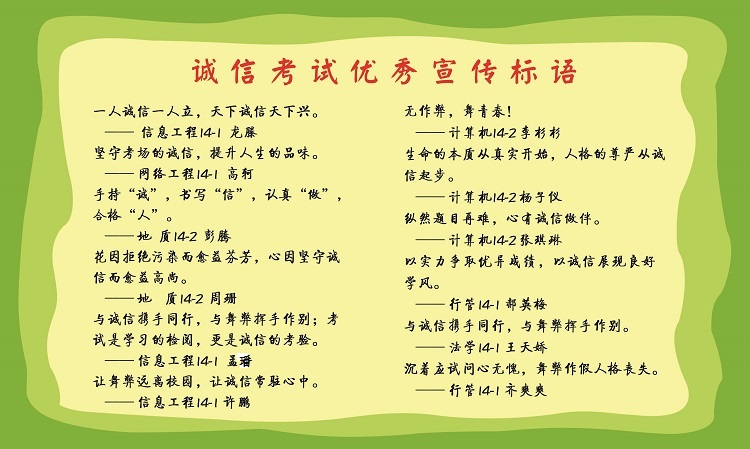 诚信考试优秀宣传标语
一人诚信一人立，天下诚信天下兴。
—— 信息工程14-1 龙滕
坚守考场的诚信，提升人生的品味。
——网络工程14-1 高轲
手持“诚”，书写“信”，认真“做”，
合格“人”。
——地 质14-2 彭腾
花因拒绝污染而愈益芬芳，心因坚守诚
信而愈益高尚。
——地 质14-2 周珊
与诚信携手同行，与舞弊挥手作别；考
试是学习的检阅，更是诚信的考验。
——信息工程14-1 孟璠
让舞弊远离校园，让诚信常驻心中。
——信息工程14-1 许鹏
无作弊，舞青春！
——计算机14-2李杉杉
生命的本质从真实开始，人格的尊严从诚
信起步。
——计算机14-2杨子仪
纵然题目再难，心有诚信做伴。
——计算机14-2张琪琳
以实力争取优异成绩，以诚信展现良好
学风。
——行管14-1 郝英梅
与诚信携手同行，与舞弊挥手作别。
——法学14-1 王天娇
沉着应试问心无愧，舞弊作假人格丧失。
——行管14-1 齐爽爽